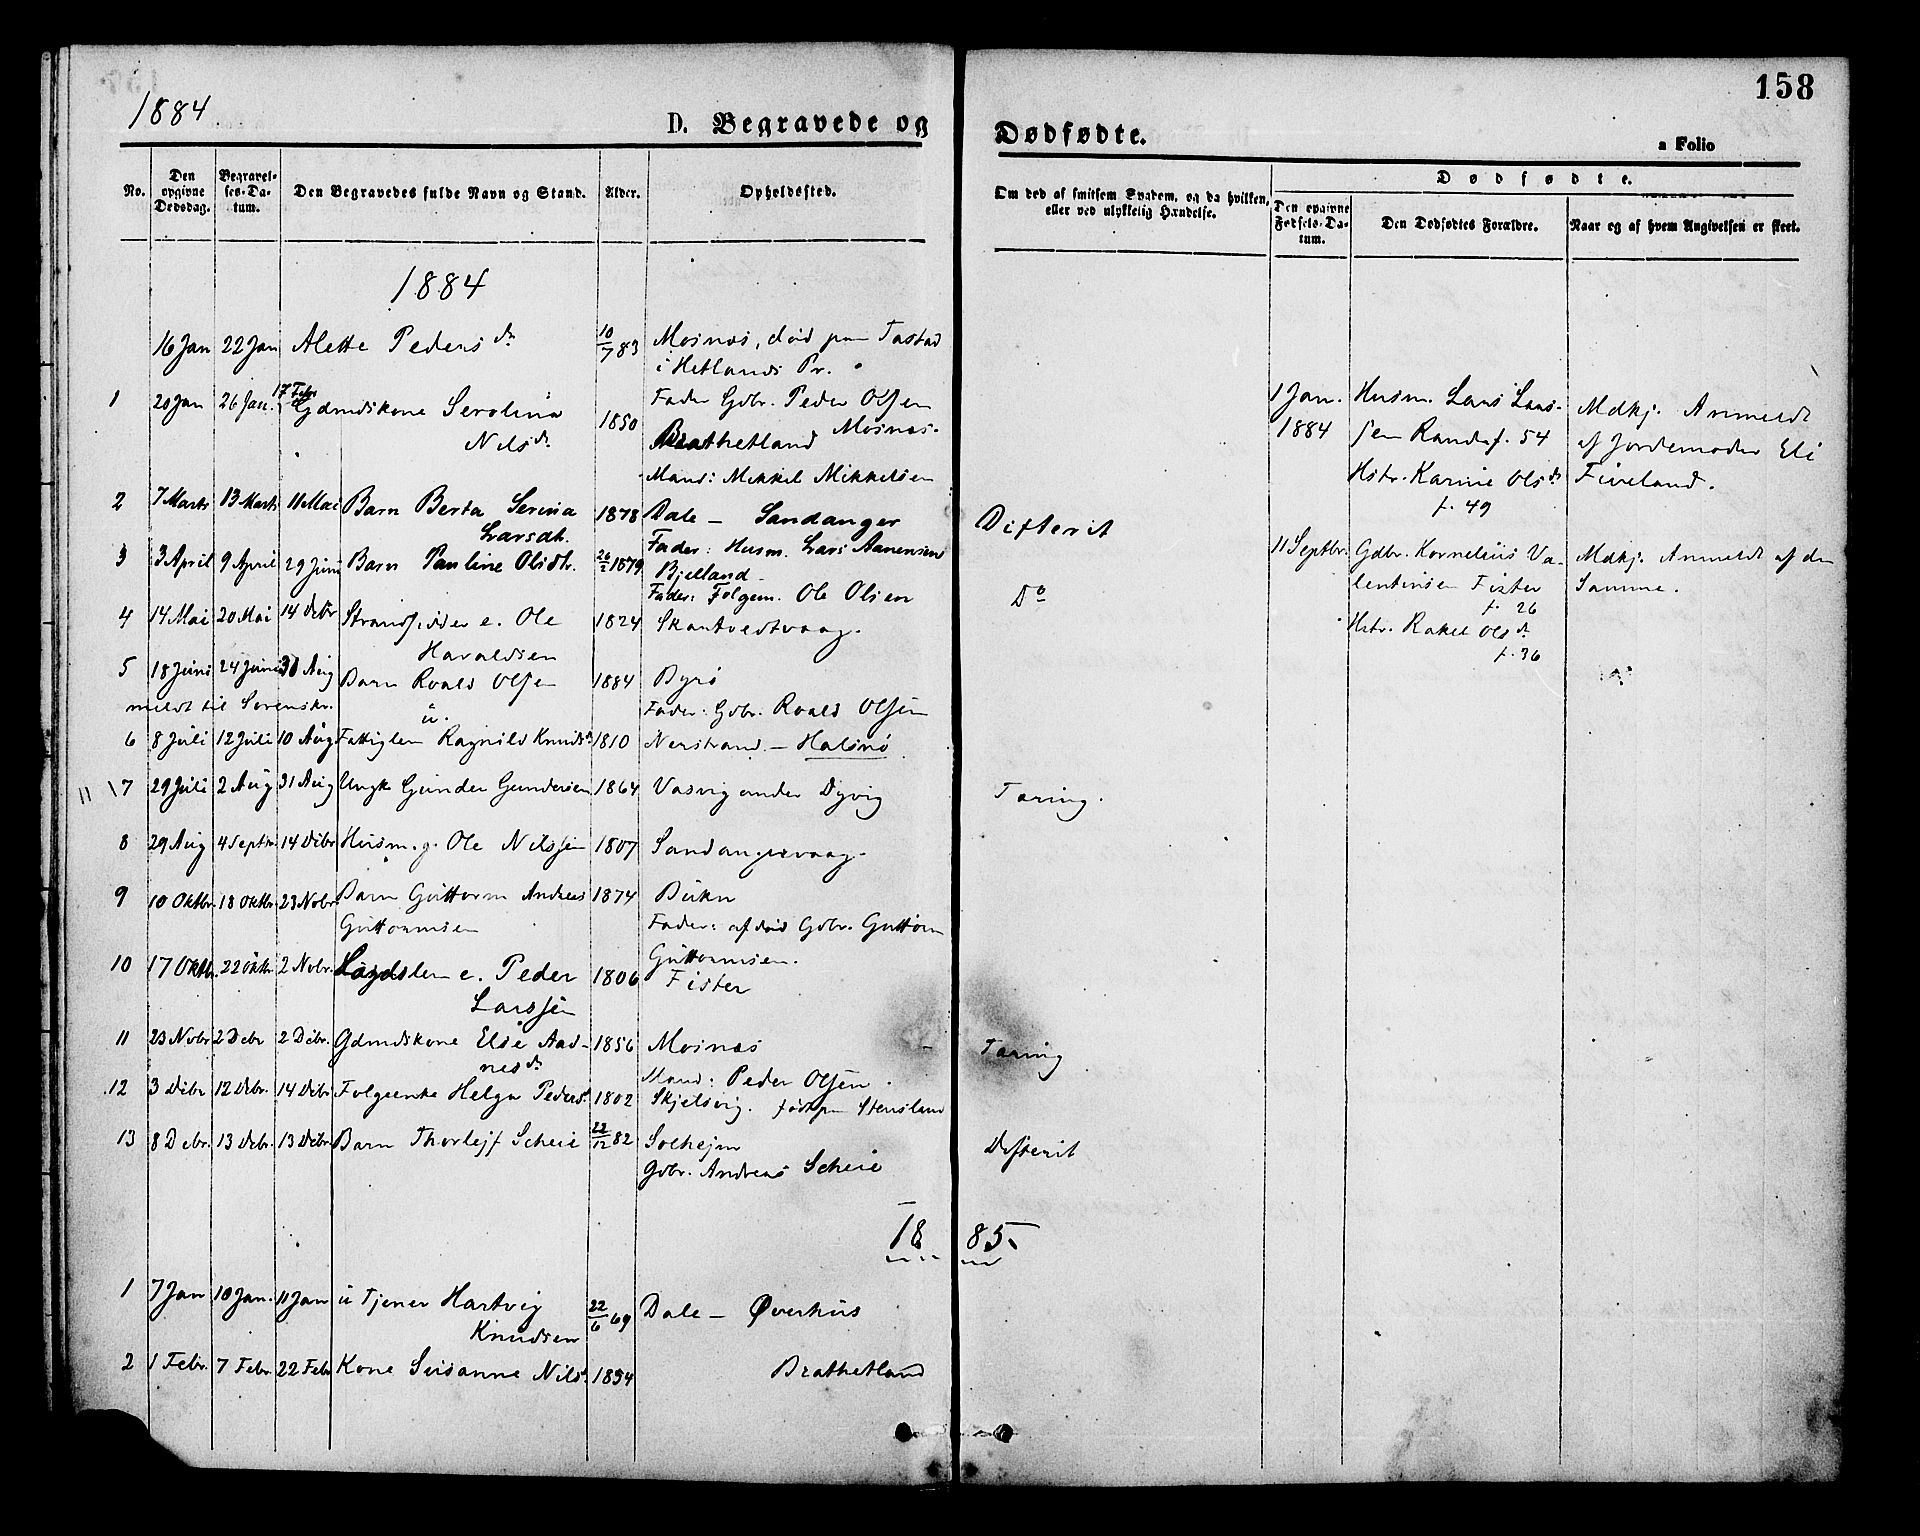 158
1884
D. Begravede og Dødfødte.
a Folio
No.
Den opgivne Dødsdag.
Begravelses-Datum.
Den Begravedes fulde Navn og Stand.
Alder.
Opholdssted.
Om død af smitsom Sygdom, og da hvilken, eller ved ulykkelig Hændelse.
Dødfødte.
Den opgivne Fødsels-Datum.
Den Dødfødtes Forældre.
Naar og af hvem Angivelsen er skeet.
1884
16 Jan 22 Jan Alette Pedersdr 10/7 83 Mosnæs, død paa Tastad
i Hetlands Pr.
Fader Gdbr. Peder Olsen
Mosnæs.
1 20 Jan 26 Jan. 17 Febr Gdmdskone Serolina 1850 Brathetland
Nilsdr
Mand: Mikkel Mikkelsen
1 Jan. 1884 Husm. Lars Lars-
sen Randa f. 54
Hstr. Karine Olsdr
f. 49
Mdkj. Anmeldt
af Jordemoder Eli
Fiveland.
2 7 Marts 13 Marts 11 Mai Barn Berta Serina 1878 Dale – Sandanger Difterit
Larsdtr.
Fader: Husm. Lars Aanensen
3 3 April 9 April 29 Juni Barn Pauline Olsdtr. 26/2 1879 Bjelland Do
Fader: Folgem. Ole Olsen
11 Septbr. Gdbr. Kornelius Va-
lentinsen Fister
f. 26
Hstr. Rakel Olsdr
f. 36
Mdkj. Anmeldt af den
Samme.
4 14 Mai 20 Mai 14 Debr Strandsidder e. Ole 1824 Skartvedtvaag.
Haraldsen
5 18 Juni 24 Juni 31 Aug Barn Roald Olsen 1884 Byrø
meldt til Sorenskr. u. Fader: Gdbr. Roald Olsen
6 8 Juli 12 Juli 10 Aug Fattiglem Ragnild Knudsdr 1810 Nerstrand – Halsnø
7 29 Juli 2 Aug 31 Aug Ungk Gunder Gundersen 1864 Vasvig under Dyvig Tæring.
8 29 Aug 4 Septm 14 Debr Husm. g. Ole Nilssen 1807 Sandangervaag.
9 10 Oktbr. 18 Oktbr. 23 Nobr Barn Guttorm Andreas 1874 Bukn
Guttormsen Fader: afdød Gdbr. Guttorm
Guttormsen.
10 17 Oktb. 22 Oktbr. 2 Nobr. Lægdslem e. Peder 1806 Fister
Larssen
11 23 Nobr 2 Debr 2 Debr. Gdmdskone Else Aad- 1856 Mosnæs Tæring
nesdr
Mand: Peder Olsen
12 3 Debr 12 Debr. 14 Debr Folgeenke Helga Pedersdr 1802 Skjelsvig. født paa Stensland
13 8 Debr. 13 Debr. 13 Debr. Barn Thorlejf Scheie 22/12 82 Solhejm Difterit
Gdbr. Andreas Scheie
1885.
1 7 Jan 10 Jan. 11 Jan u Tjener Hartvig 22/6 69 Dale – Øverhus
Knudsen
2 1 Febr. 7 Febr 22 Febr Kone Susanne Nilsdr 1834 Brathetland